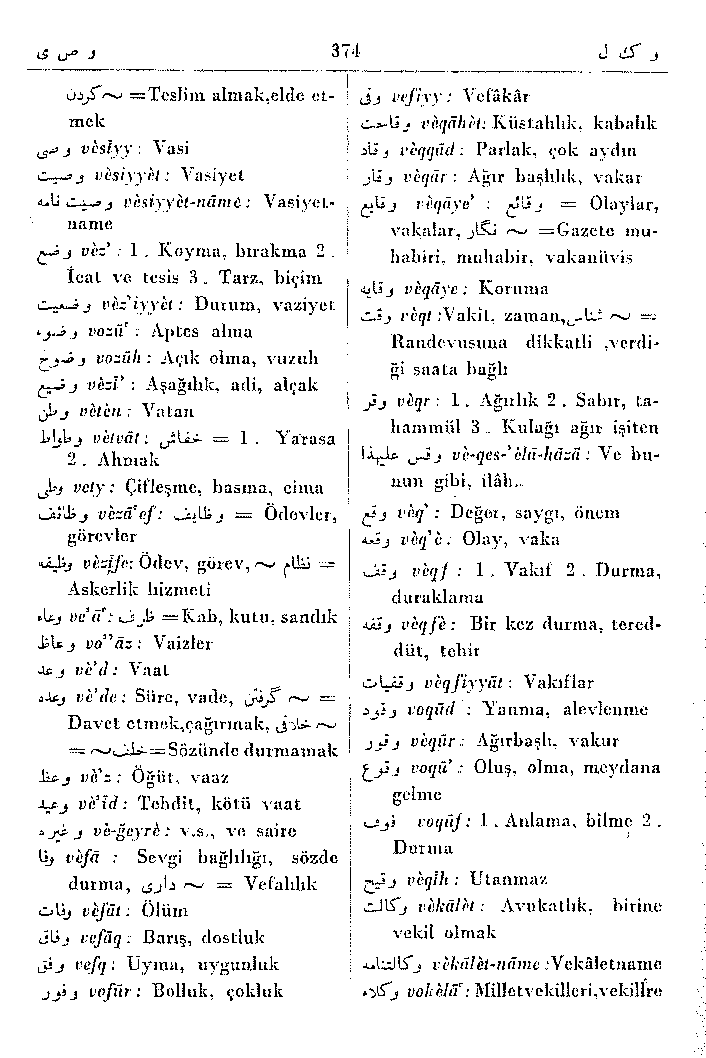 و ص ی 374 و ک ل
کردن ~ =Teslim almak,elde et-
mek
وصی vèsiyy : Vasi
وصیت vèsiyyèt : Vasiyet
وصیت نامه vèsiyyèt-nâmè : Vasiyet-
name
وضع vèz' : 1 . Koyma, bırakma 2 .
İcat ve tesis 3 . Tarz, biçim
وضعیت vèz'iyyèt : Durum, vaziyet
وضوء vozūʿ : Aptes alma
وضوح vozūh : Açık olma, vuzuh
وضیع vèzī' : Aşağılık, adi, alçak
وطن vètèn : Vatan
وطواط vètvāt : خفاش = 1 . Yarasa
2 . Ahmak
وطی vety : Çifleşme, basma, cima
وظائف vèzāʿef : وظایف = Ödevler,
görevler
وظیفه vèzīfe: Ödev, görev, ~ نظام =
Askerlik hizmeti
وعاء ve'āʿ : ظرف =Kab, kutu, sandık
وعاظ vo''āz : Vaizler
وعد vè'd : Vaat
وعده vè'de : Süre, vade, گرفتن ~ =
Davet etmek,çağırmak, خلاف ~
= ~ خلف =Sözünde durmamak
وعظ vè'z : Öğüt, vaaz
وعید vè'īd : Tehdit, kötü vaat
و غیره vè-ğeyrè : v.s., ve saire
وفا vèfā : Sevgi bağlılığı, sözde
durma, داری ~ = Vefalılık
وفات vèfāt : Ölüm
وفاق vefāq : Barış, dostluk
وفق vefq : Uyma, uygunluk
وفور vofūr : Bolluk, çokluk
وفی vefiyy : Vefâkâr
وقاحت vèqāhèt: Küstahlık, kabalık
وقاد vèqqād : Parlak, çok aydın
وقار vèqār : Ağır başlılık, vakar
وقایع vèqāye' : وقائع = Olaylar,
vakalar, نگار ~ =Gazete mu-
habiri, muhabir, vakanüvis
وقایه vèqāye : Koruma
وقت vèqt :Vakit, zaman, شناس ~ =
Randevusuna dikkatli ,verdi-
ği saata bağlı
وقر vèqr : 1 . Ağırlık 2 . Sabır, ta-
hammül 3 . Kulağı ağır işiten
وقس علیهذا vè-qes-'èlā-hāzā : Ve bu-
nun gibi, ilâh..
وقع vèq' : Değer, saygı, önem
وقعه vèq'è : Olay, vaka
وقف vèqf : 1 . Vakıf 2 . Durma,
duraklama
وقفه vèqfè : Bir kez durma, tered-
düt, tehir
وقفیات vèqfiyyāt : Vakıflar
وقود voqūd : Yanma, alevlenme
وقور vèqūr : Ağırbaşlı, vakur
وقوع voqū' : Oluş, olma, meydana
gelme
وقوف voqūf : 1 . Anlama, bilme 2 .
Durma
وقیح vèqīh : Utanmaz
وکالت vèkālèt : Avukatlık, birine
vekil olmak
وکالتنامه vèkālèt-nāme :Vekâletname
وکلاء vokèlāʿ : Milletvekilleri,vekillre